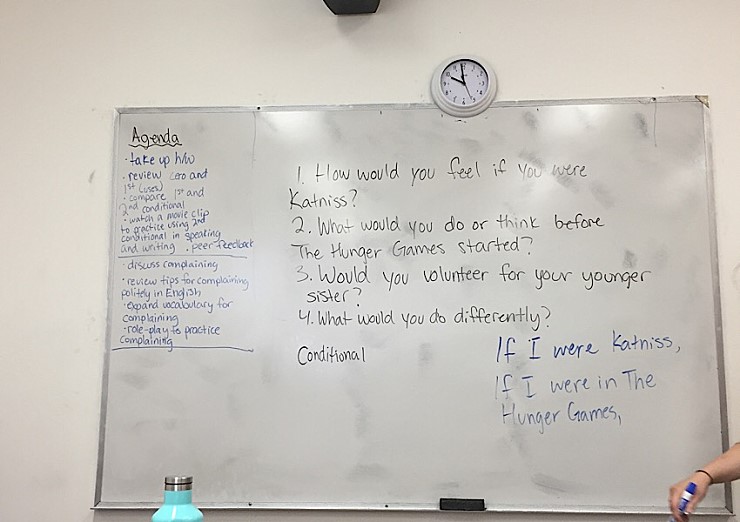 Agenda
· take up h/w
· review zero and
1st (uses)
· compare 1st and
2nd conditional
· watch a movie clip
to practice using 2nd
conditional in speaking
and writing · peer-feedback
· discuss complaining
· review tips for complaining
politely in English
· expand vocabulary for
complaining
· role-play to practice
complaining
1. How would you feel if you were
Katniss?
2. What would you do or think before
The Hunger Games started?
3. Would you volunteer for your younger
sister?
4. What would you do differently?
Conditional
If I were Katniss,
If I were in The
Hunger Games,